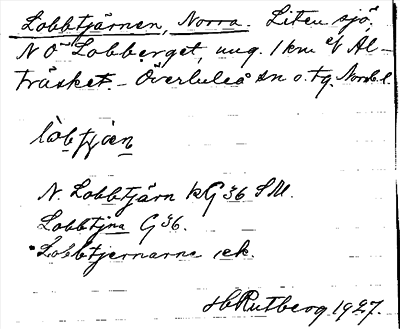 Lobbtjärnen, Norra. Liten sjö,
NO Lobberget, ung. 1 km N Äl-
träsket. – Överluleå sn o. tg, Nordb. l.
lòbtjæn
N. Lobbtjärn kG 36 SM.
Lobbtjna G 36.
Lobbtjernarne ek.
H Rutberg 1927.